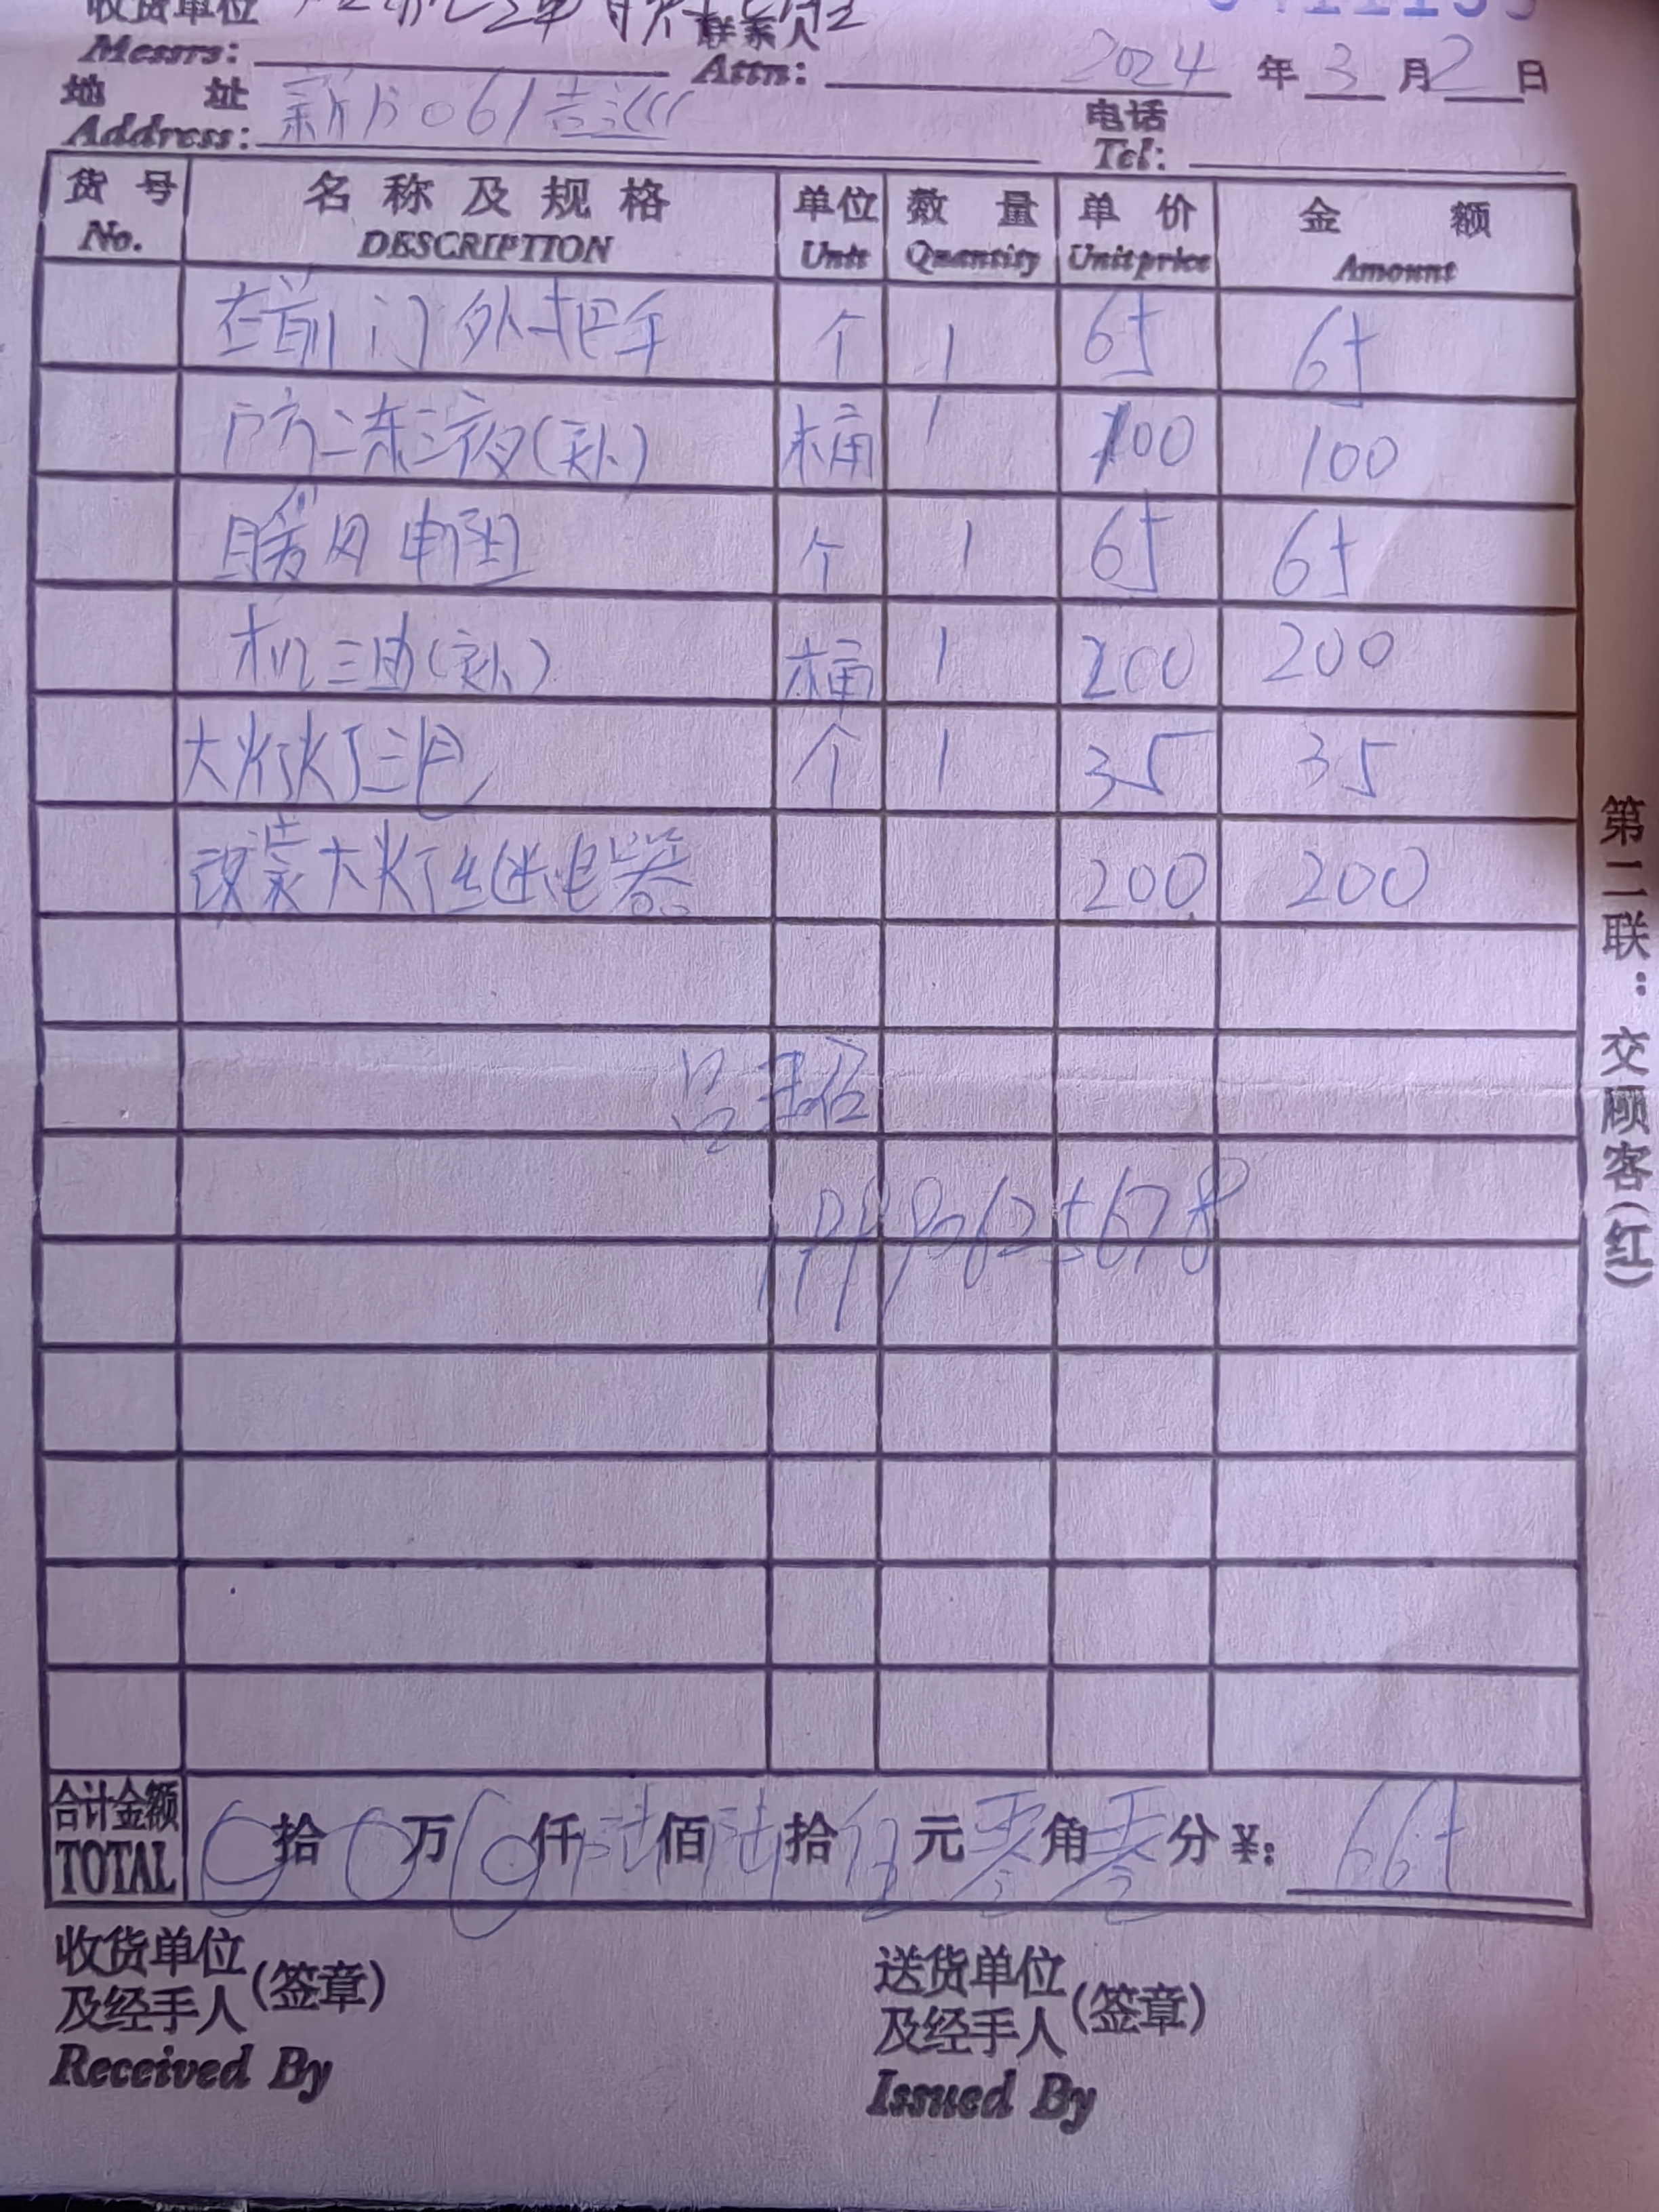 收货单位 联系人
Messrs: Attn: 2024 年 3 月 2 日
地 址 电话
Address: 061 Tel:
货 号 名 称 及 规 格 单位 数 量 单 价 金 额
No. DESCRIPTION Unit Quantity Unit price Amount
左前门外把手 个 1 65 65
防冻液(补) 桶 1 100 100
暖风电阻 个 1 65 65
机油(补) 桶 1 200 200
大灯灯泡 个 1 35 35
改装大灯线继电器 200 200
合计金额 0 拾 0 万 0 仟 陆 佰 陆 拾 伍 元 零 角 零 分 ¥: 665
TOTAL
收货单位
及经手人(签章)
Received By
送货单位
及经手人(签章)
Issued By
第二联:交顾客(红)